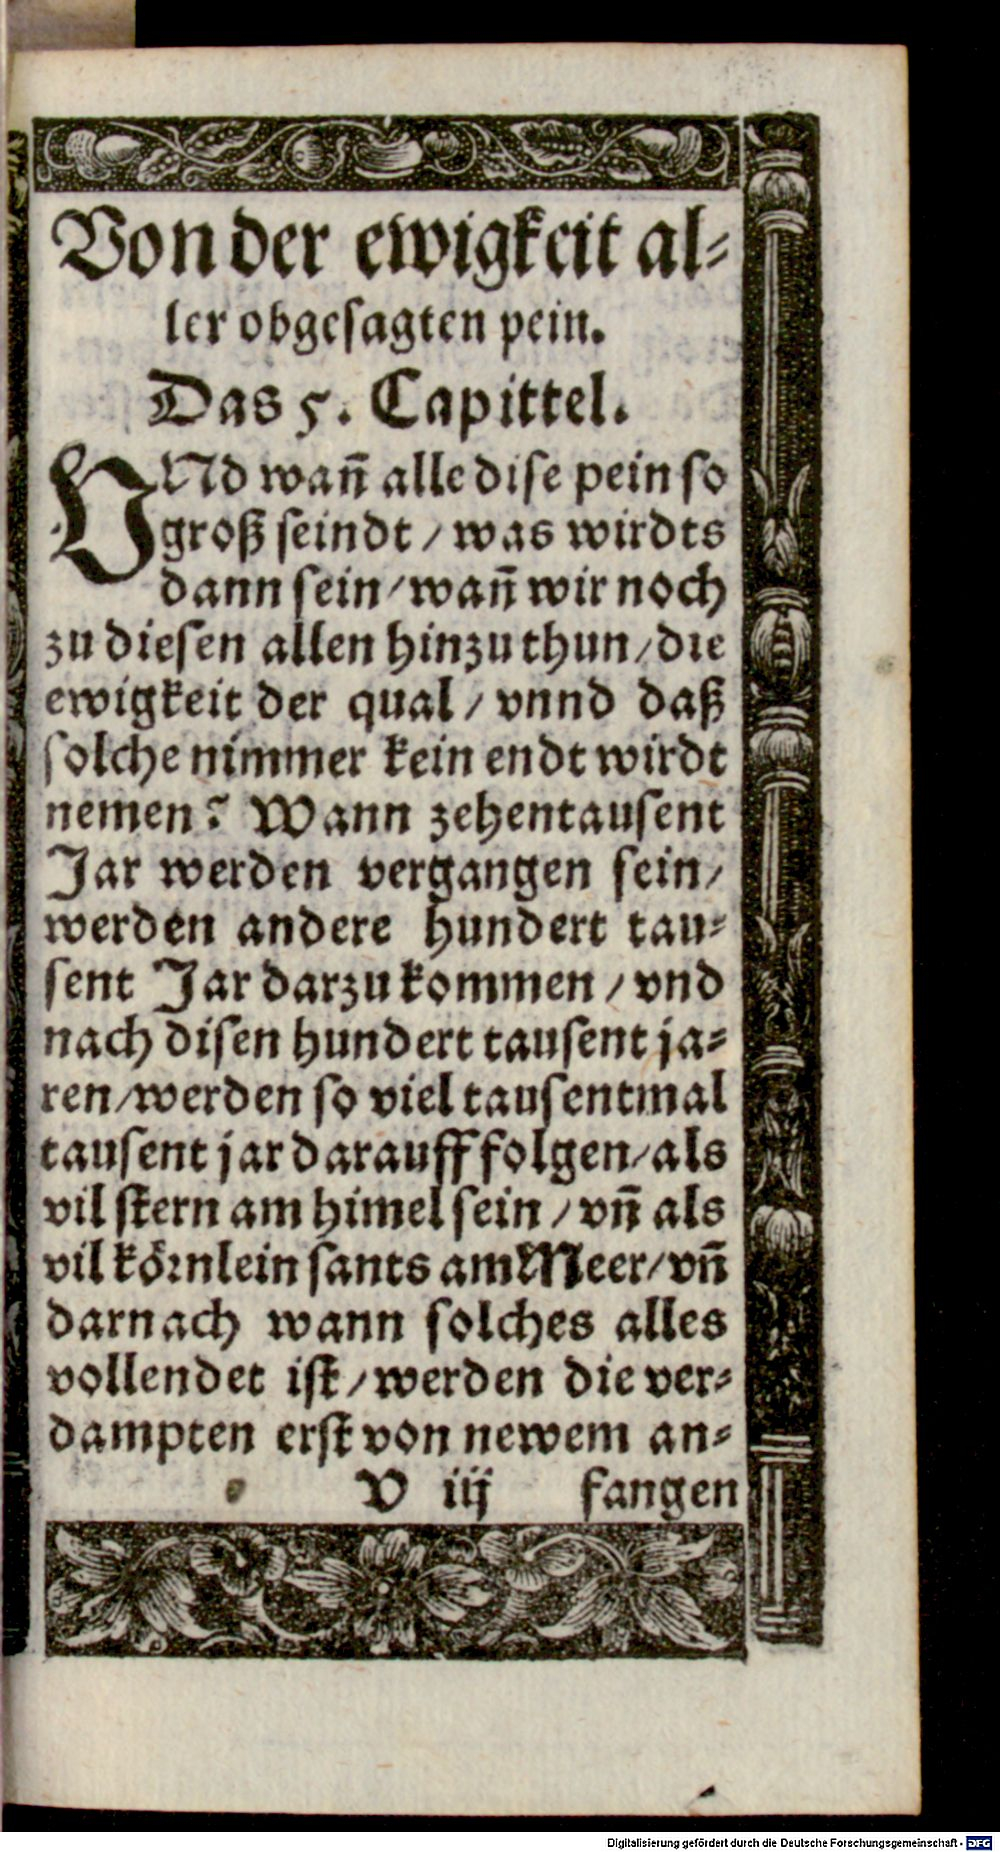 Von der ewigkeit al-
ler obgesagten pein.
Das 5. Capittel.
VNd wañ alle dise pein so
groß seindt / was wirdts
dann sein / wañ wir noch
zu diesen allen hinzu thun / die
ewigkeit der qual / vnnd daß
solche nimmer kein endt wirdt
nemen? Wann zehentausent
Jar werden vergangen sein /
werden andere hundert tau-
sent Jar darzu kommen / vnd
nach disen hundert tausent ja-
ren / werden so viel tausentmal
tausent jar darauff folgen / als
vil stern am himel sein / vñ als
vil koͤrnlein sants am Meer / vñ
darnach wann solches alles
vollendet ist / werden die ver-
dampten erst von newem an-
V iij fangen
Digitalisierung gefördert durch die Deutsche Forschungsgemeinschaft - DFG